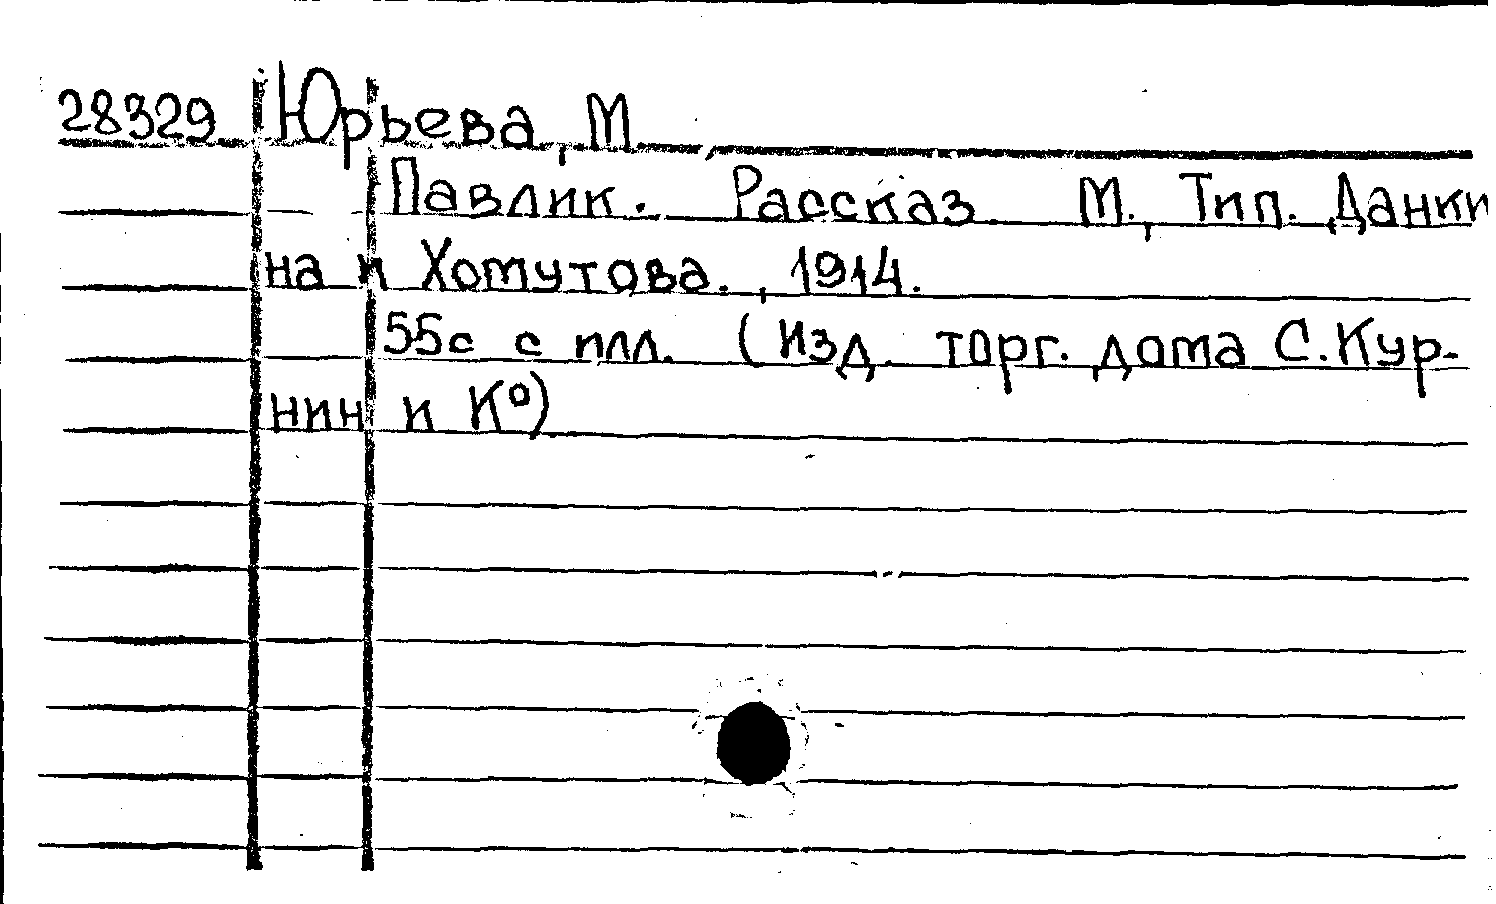 28329 Юрьева, М.
Павлик. Рассказ. М., Тип. Данки
на и Хомутова., 1914.
55с с илл. (Изд. торг. дома С. Кур-
нин и К°)